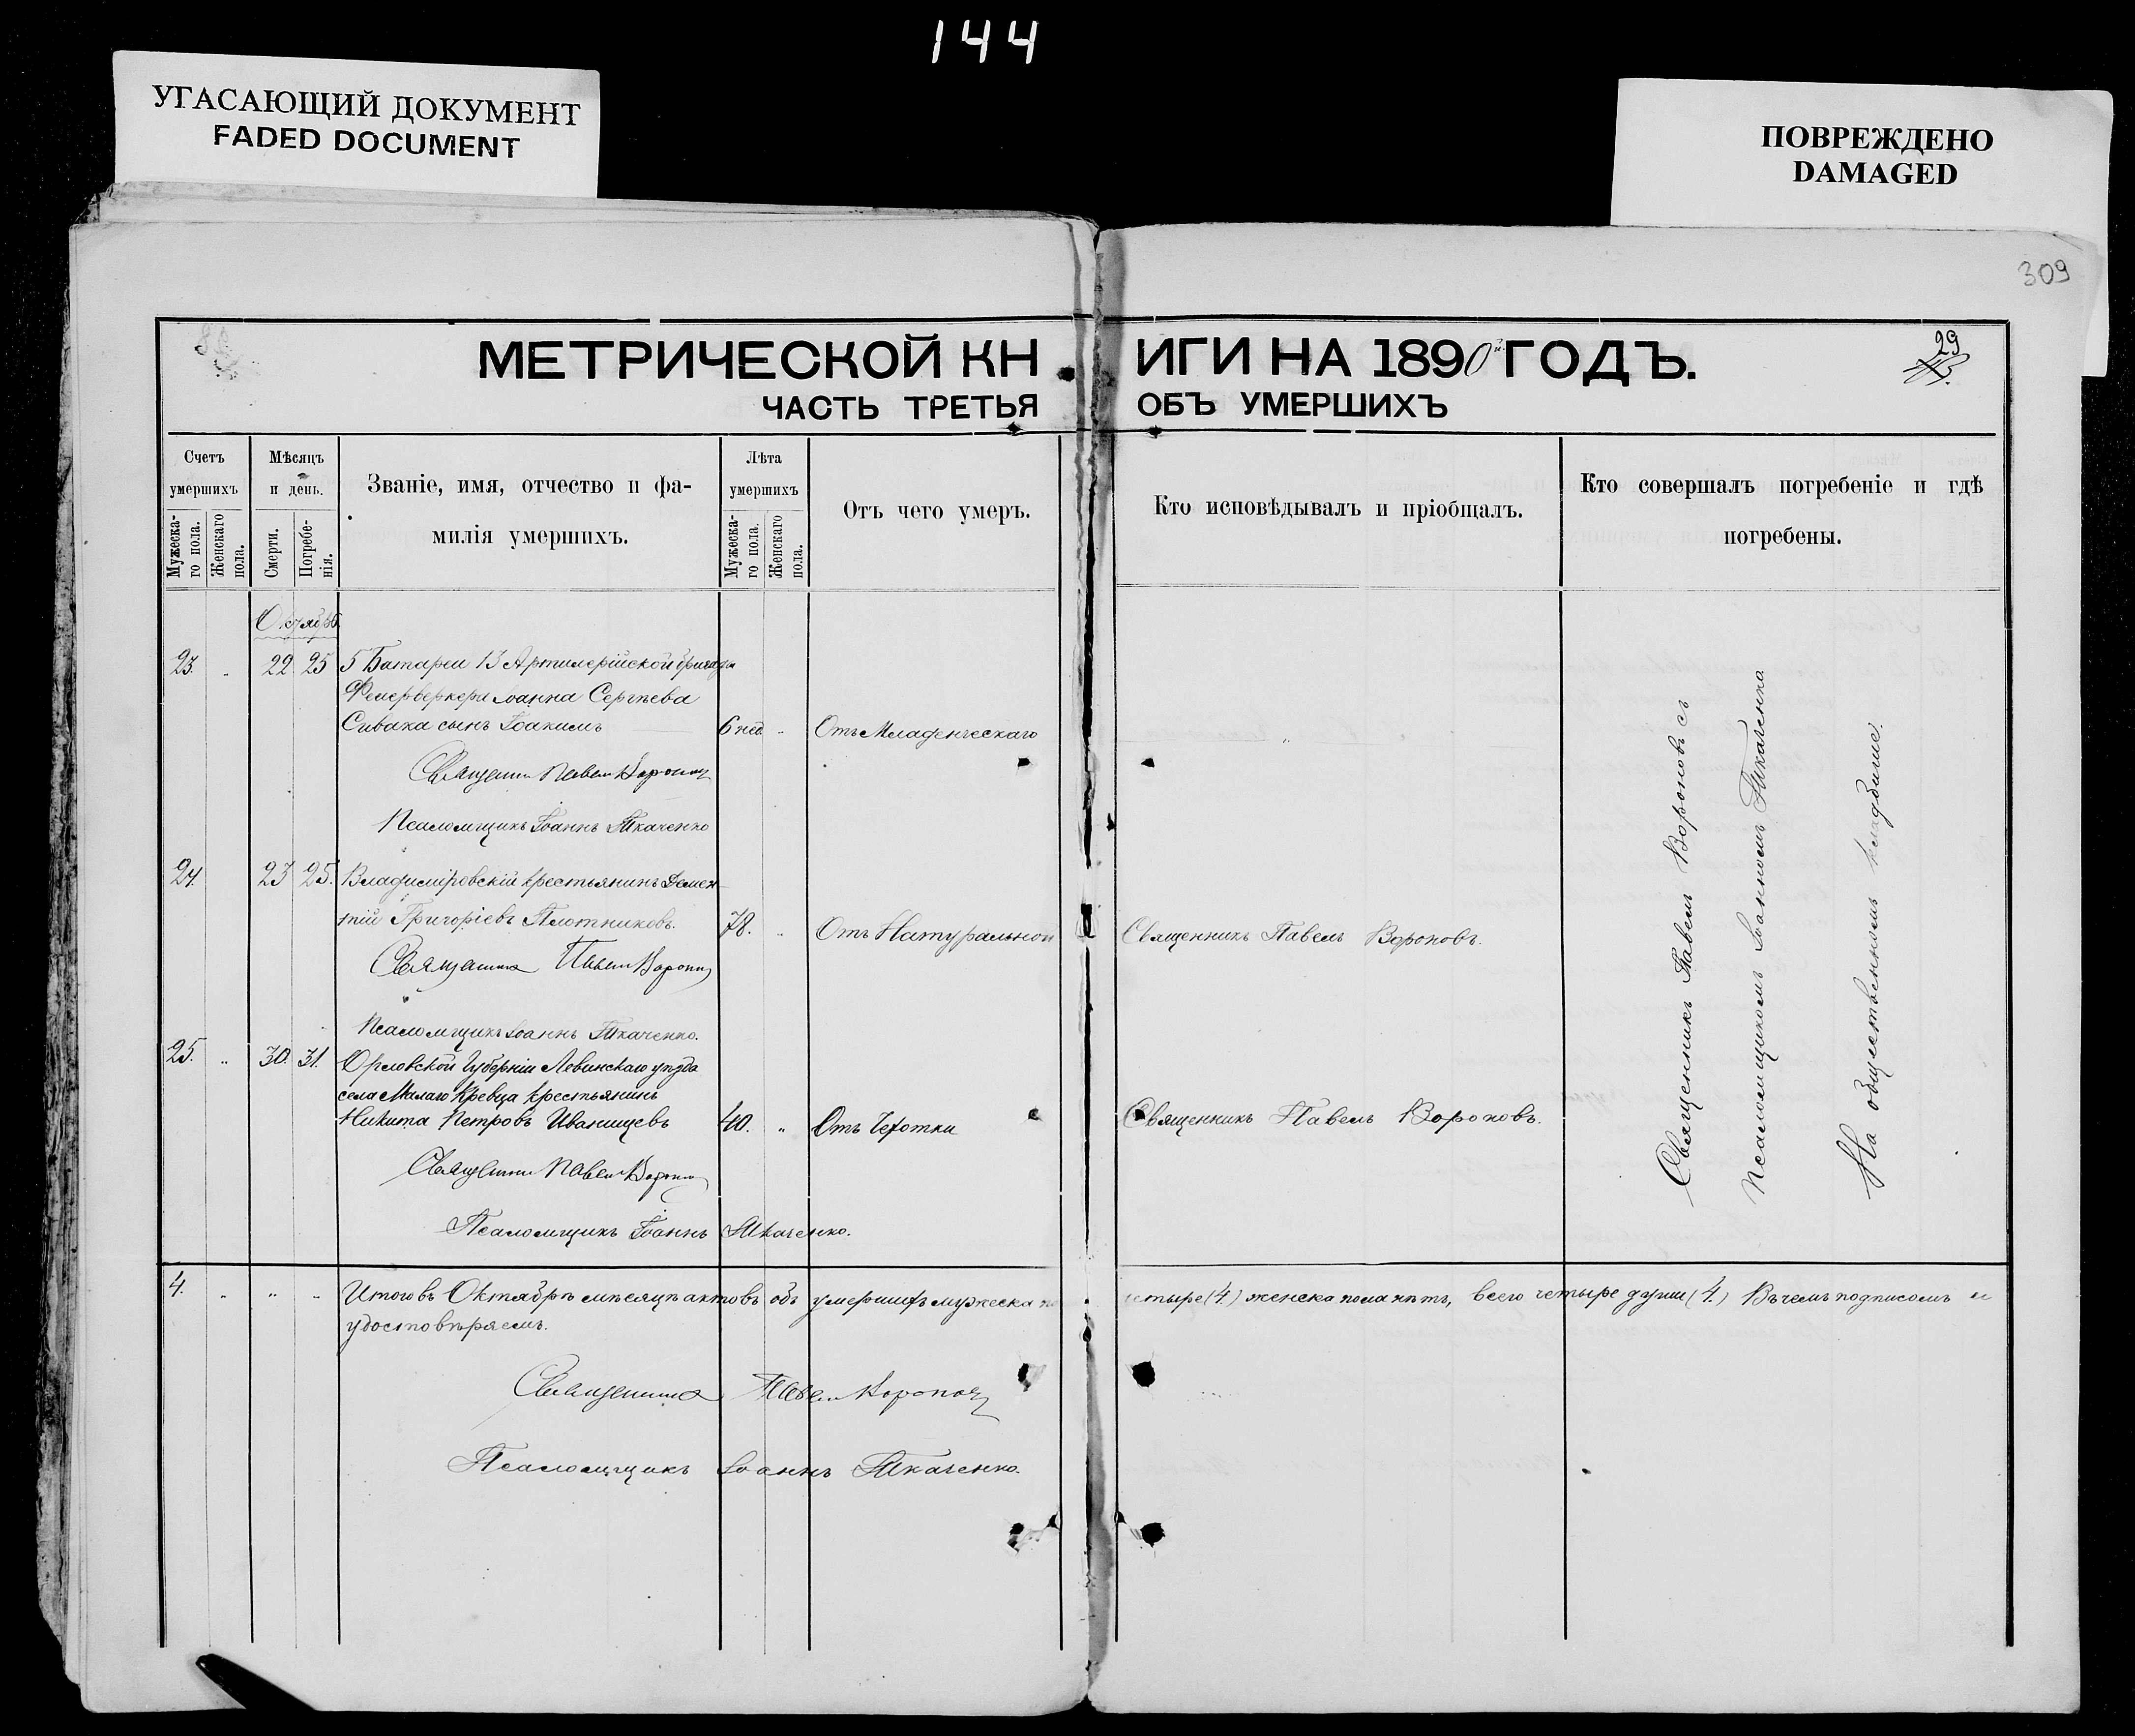 144
УГАСАЮЩИЙ ДОКУМЕНТ
FADED DOCUMENT
ПОВРЕЖДЕНО
DAMAGED
309
29
МЕТРИЧЕСКОЙ КНИГИ НА 1890й ГОДЪ.
ЧАСТЬ ТРЕТЬЯ ОБЪ УМЕРШИХЪ
Счетъ умершихъ
Мужеска-го пола.
Женскаго пола.
Мѣсяцъ и день.
Смерти.
Погребе-нія.
Званіе, имя, отчество и фа-
милія умершихъ.
Лѣта умершихъ
Мужеска-го пола.
Женскаго пола.
Отъ чего умеръ.
Кто исповѣдывалъ и пріобщалъ.
Кто совершалъ погребеніе и гдѣ
погребены.
Октябрь
23. " 22 25 5 Батареи 13 Артилерійской бригады
Фейерверкера Іоанна Сергѣева
Сивака сынъ Іоакимъ 6 нед. " Отъ Младенческаго
Священникъ Павелъ Вороновъ
Псаломщикъ Іоаннъ Ткаченко
24. 23 25. Владимировскій крестьянинъ Демен-
тій Григоріевъ Плотниковъ. 78. " Отъ Натуральной Священникъ Павелъ Вороновъ.
Священникъ Павелъ Вороновъ
Псаломщикъ Іоаннъ Ткаченко.
25. " 30. 31. Орловской Губерніи Левинскаго уѣзда
села Малаго Кревца крестьянинъ
Никита Петровъ Иванищевъ 40. " Отъ Чехотки Священникъ Павелъ Вороновъ.
Священникъ Павелъ Вороновъ
Псаломщикъ Іоаннъ Ткаченко.
Священникъ Павелъ Вороновъ съ
Псаломщикомъ Іоанномъ Ткаченка
На общественномъ кладбищѣ.
4. " " " Итого въ Октябрѣ мѣсяцѣ актовъ объ умершихъ мужеска четыре (4.) женска пола нѣтъ, всего четыре души (4.) Въ чемъ подписомъ и
удостовѣряемъ.
Священникъ Павелъ Вороновъ
Псаломщикъ Іоаннъ Ткаченко.